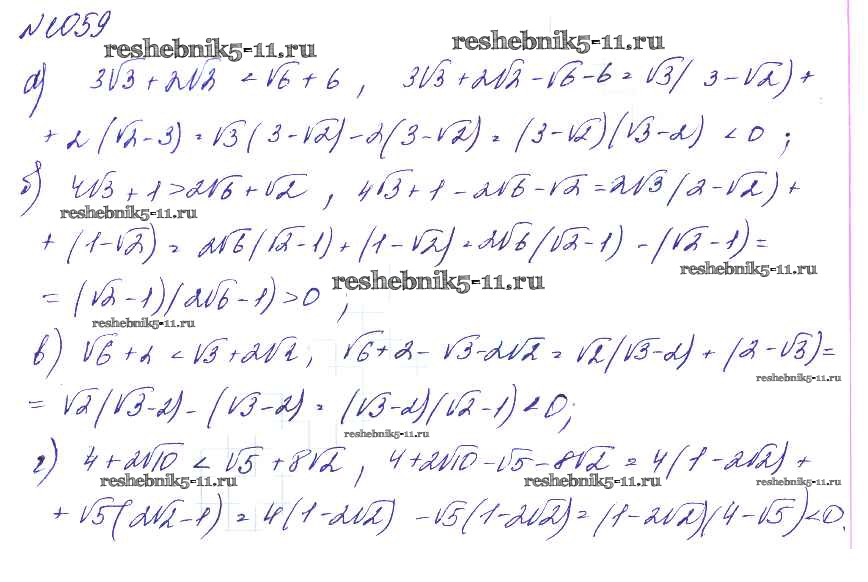 №1059
reshebnik5-11.ru reshebnik5-11.ru
а) 3√3 + 2√2 < √6 + 6 , 3√3 + 2√2 - √6 - 6 = √3( 3 - √2) +
+ 2 (√2 - 3) = √3 (3 - √2) - 2(3 - √2) = (3 - √2)(√3 - 2) < 0 ;
б) 4√3 + 1 > 2√6 + √2 , 4√3 + 1 - 2√6 - √2 = 2√3 (2 - √2) +
reshebnik5-11.ru
+ (1 - √2) = 2√6 (√2 - 1) + (1 - √2) = 2√6 (√2 - 1) - (√2 - 1) =
reshebnik5-11.ru
reshebnik5-11.ru
= (√2 - 1)(2√6 - 1) > 0 ;
reshebnik5-11.ru
в) √6 + 2 < √3 + 2√2 ; √6 + 2 - √3 - 2√2 = √2 (√3 - 2) + (2 - √3) =
reshebnik5-11.ru
= √2 (√3 - 2) - (√3 - 2) = (√3 - 2)(√2 - 1) < 0;
reshebnik5-11.ru
г) 4 + 2√10 < √5 + 8√2 , 4 + 2√10 - √5 - 8√2 = 4(1 - 2√2) +
reshebnik5-11.ru reshebnik5-11.ru reshebnik5-11.ru
+ √5 (2√2 - 1) = 4(1 - 2√2) - √5 (1 - 2√2) = (1 - 2√2)(4 - √5) < 0.